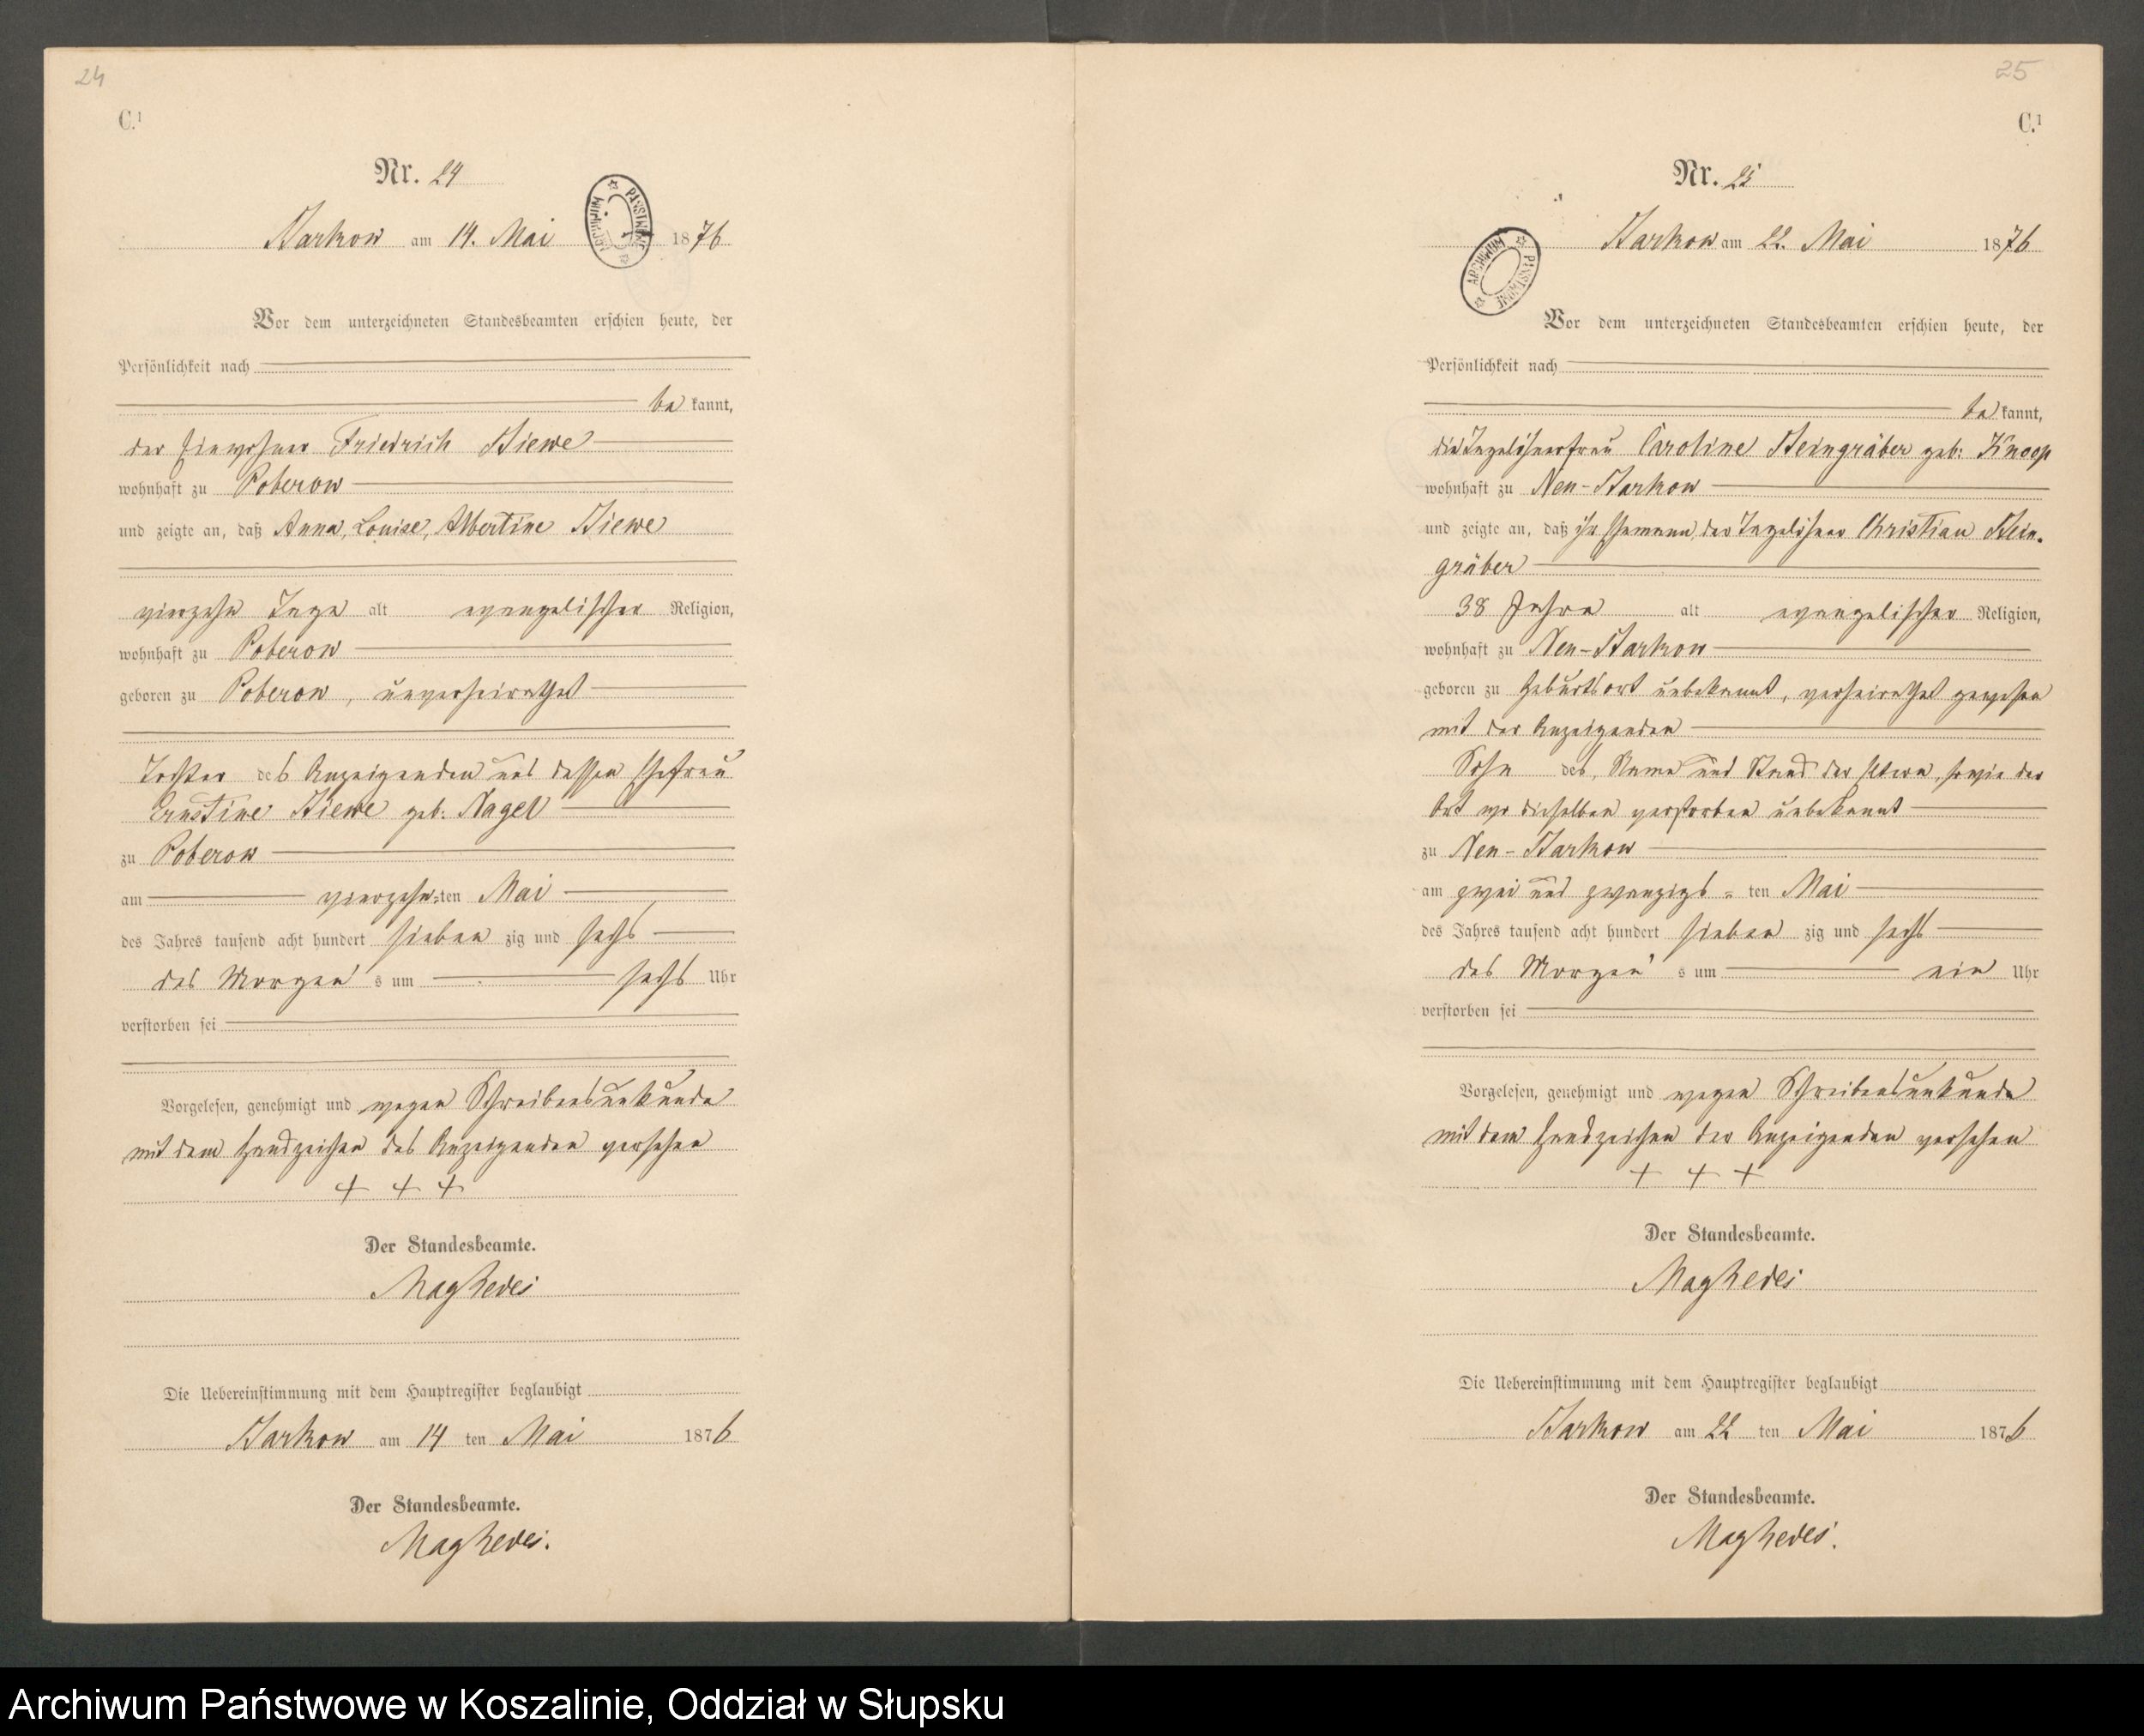 24
C.¹
Nr. 24
Starkow am 14. Mai 1876
Vor dem unterzeichneten Standesbeamten erschien heute, der
Persönlichkeit nach
be kannt,
der Einwohner Friedrich Stiewe
wohnhaft zu Poberow
und zeigte an, daß Anna, Louise, Albertine Stiewe
vierzehn Tage alt evangelischer Religion,
wohnhaft zu Poberow
geboren zu Poberow, unverheirathet
Tochter des Anzeigenden und dessen Ehefrau
Ernstine Stiewe geb. Nagel
zu Poberow
am vierzehn=ten Mai
des Jahres tausend acht hundert sieben zig und sechs
des Morgen s um sechs Uhr
verstorben sei
Vorgelesen, genehmigt und wegen Schreibensunkunde
mit dem Handzeichen des Anzeigenden versehen
+ + +
Der Standesbeamte.
Die Uebereinstimmung mit dem Hauptregister beglaubigt
Starkow am 14 ten Mai 1876
Der Standesbeamte.
25
C.¹
Nr. 25
ARCHIWUM PAŃSTWOWE
Starkow am 22. Mai 1876
Vor dem unterzeichneten Standesbeamten erschien heute, der
Persönlichkeit nach
be kannt,
die Tagelöhnerfrau Caroline Steingräber geb: Knoop
wohnhaft zu Neu-Starkow
und zeigte an, daß ihr Ehemann, der Tagelöhner Christian Stein-
gräber
38 Jahre alt evangelischer Religion,
wohnhaft zu Neu-Starkow
geboren zu Geburtsort unbekannt, verheirathet gewesen
mit der Anzeigenden
Sohn des, Name und Stand der Eltern, sowie der
Ort wo dieselben verstorben unbekannt
zu Neu-Starkow
am zwei und zwanzigs = ten Mai
des Jahres tausend acht hundert sieben zig und sechs
des Morgen s um ein Uhr
verstorben sei
Vorgelesen, genehmigt und wegen Schreibensunkunde
mit dem Handzeichen der Anzeigenden versehen
+ + +
Der Standesbeamte.
Die Uebereinstimmung mit dem Hauptregister beglaubigt
Starkow am 22 ten Mai 1876
Der Standesbeamte.
Archiwum Państwowe w Koszalinie, Oddział w Słupsku